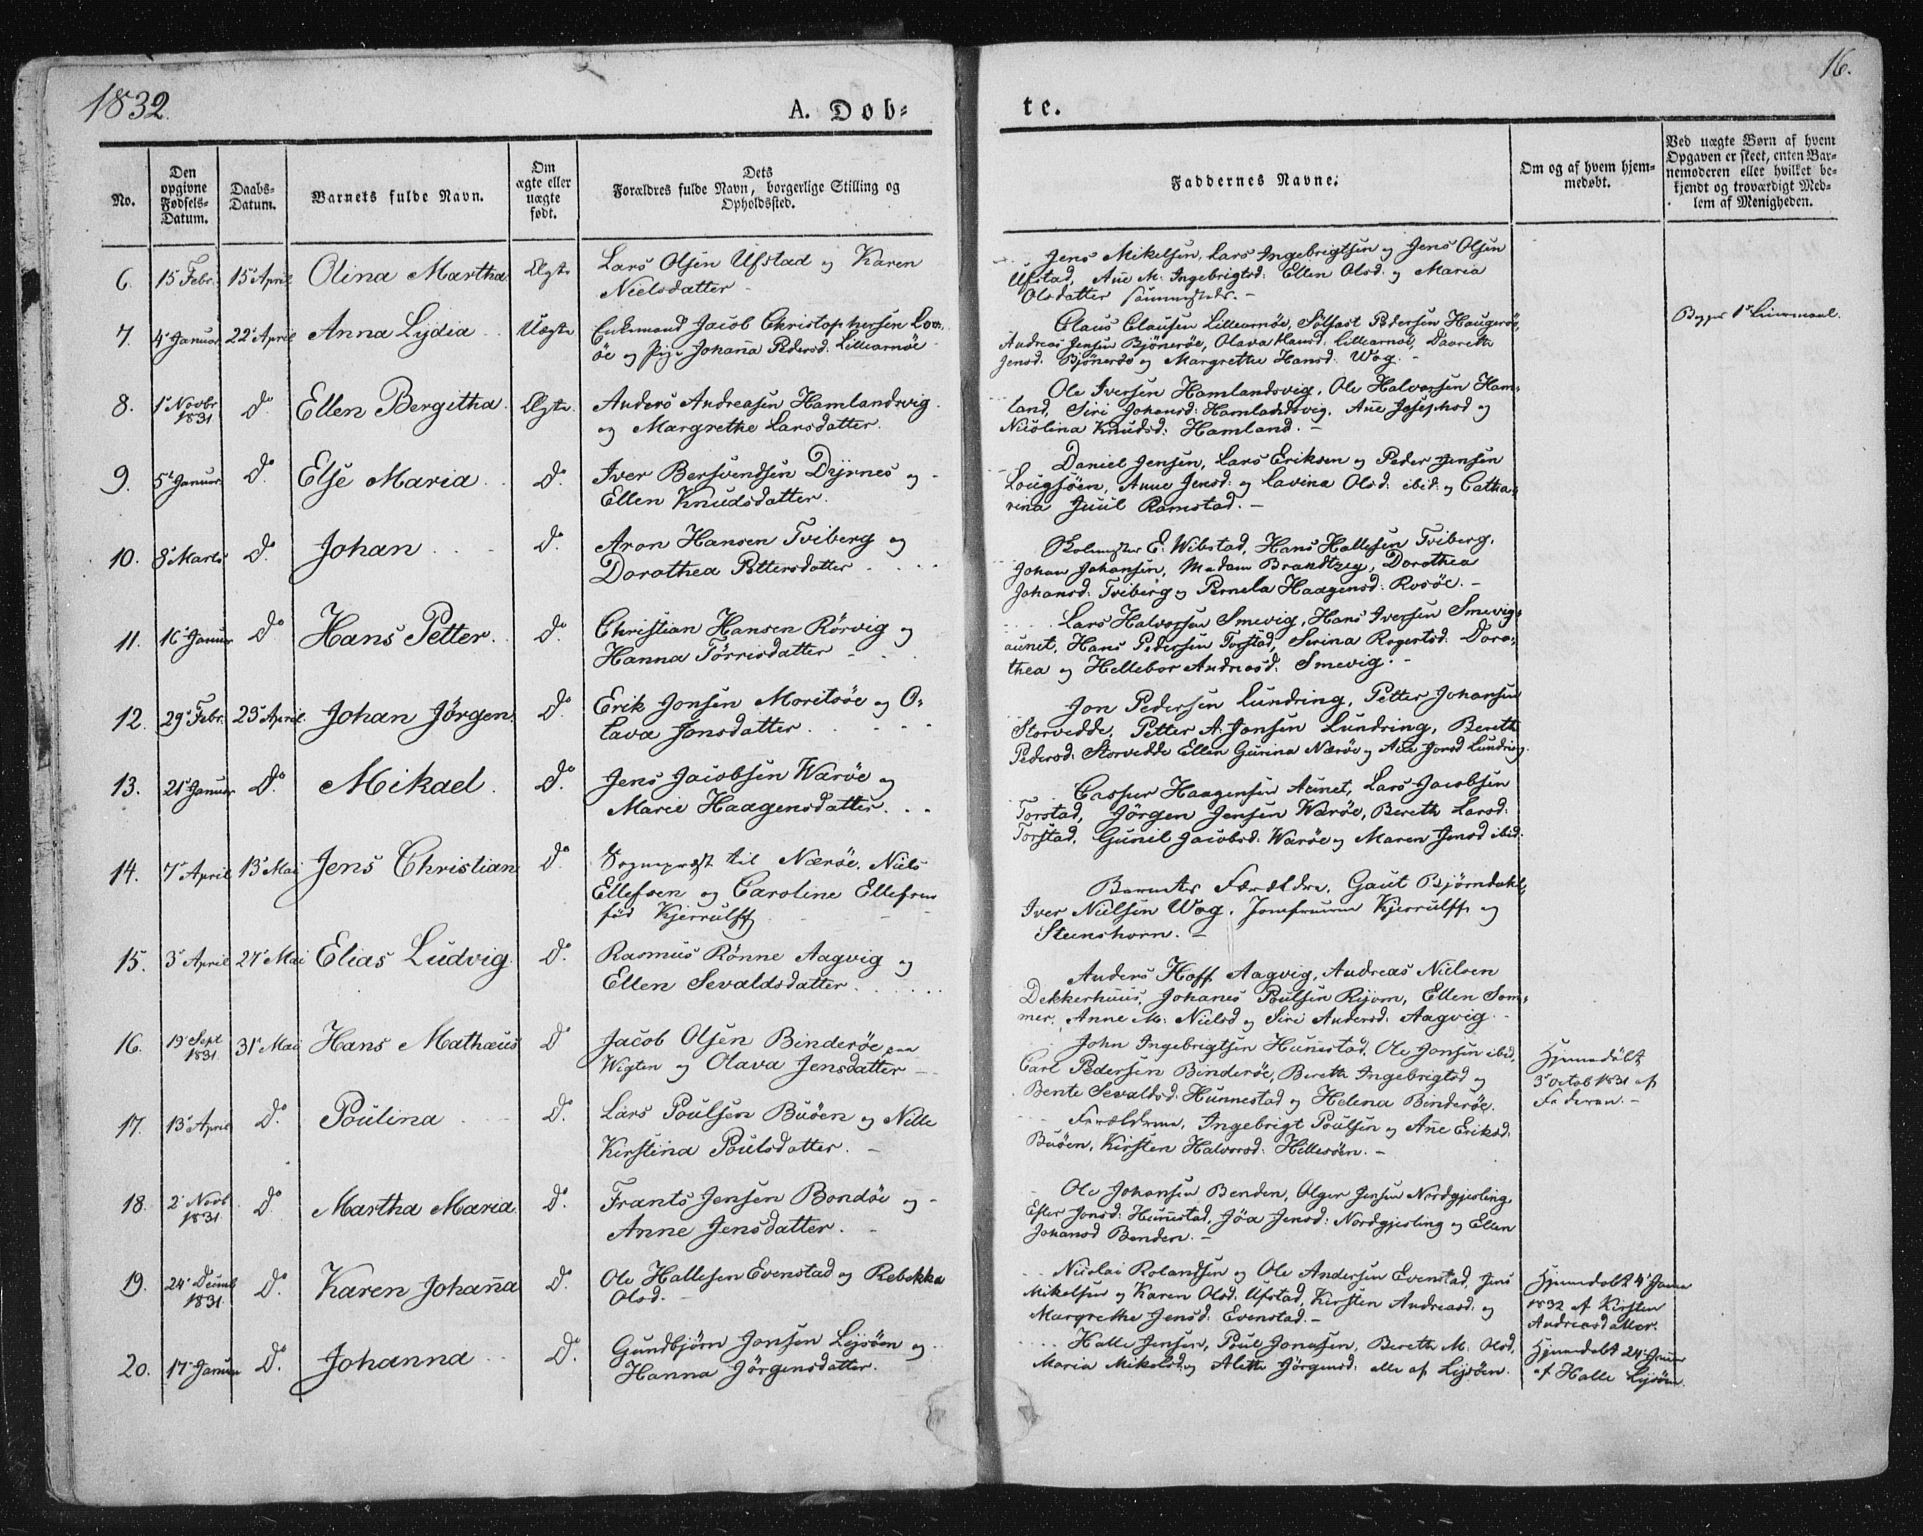 1832. A. Döb-
te.
16.
No.
Den opgivne Fødsels-Datum.
Daabs-Datum.
Barnets fulde Navn.
Om ægte eller uægte født.
Dets Forældres fulde Navn, borgerlige Stilling og Opholdssted.
Faddernes Navne.
Om og af hvem hjem-
medøbt.
Ved uægte Børn af hvem
Opgaven er skeet, enten Bar-
nemoderen eller hvilket be-
kjendt og troværdigt Med-
lem af Menigheden.
6. 15 Febr. 15 April Olina Martha Ægte Lars Olsen Ufstad og Karen
Nielsdatter
Jens Mikelsen, Lars Ingebrigtsen og Jens Olsen
Ufstad, Ane M. Ingebrigtsd: Ellen Olsd: og Maria
Olsdatter
7. 4 Januar 22 April Anna Lydia Uægte Enkemand Jacob Christophersen Lov-
öe og Pige Johana Pedersd: Lillearnöe
Claus Clausen Lillearnöe, Sölfast Pedersen Haugeröe,
Andreas Jensen Bjöneröe, Olava Hansd. Lillearnöe, Daareth
Jensd. Bjöneröe og Margrethe Hansd. Wog.
8. 1 Novbr 1831 Do Ellen Bergitha Ægte Anders Andreasen Hamlandsvig
og Margrethe Larsdatter.
Ole Iversen Hamlandsvig, Ole Halvorsen Ham-
land, Siri Johansd: Hamlandsvig, Ane Josephsd og
Nicolina Knudsd: Hamland.
9. 5 Januar Do Else Maria Do. Iver Bersvendsen Dyrnes og
Ellen Knudsdatter.
Daniel Jensen, Lars Eriksen og Peder Jensen
Lougsöen, Anne Jensd: og Lavina Olsd: ibid: og Catha-
rina Juul Ramstad.
10. 8 Marts Do Johan Do. Aron Hansen Tviberg og
Dorothea Pettersdatter
E. Wibstad, Hans Hallesen Tviberg,
Johan Johansen, Madam Brandtzeg, Dorothea
Johansd: Tviberg og Pernela Haagensd: Rosöe.
11. 16 Januar Do Hans Petter Do. Christian Hansen Rörvig og
Hanna Törrisdatter
Lars Halvorsen Smevig, Hans Iversen Smevig-
aunet, Hans Pedersen Torstad, Serina Rogertsd: Doro-
thea og Hellebor Andreasd: Smevig.
12. 29 Febr. 23 April Johan Jörgen Do. Erik Jonsen Moritsöe og O-
lava Jonsdatter
Jon Pedersen Lundring, Petter Johansen
Storvedde, Petter A. Jonsen Lundring, Bereth
Pedersd: Storvedde Ellen Gurina Næröe og Ane Jonsd Lundring.
13. 21 Januar Do. Mikael Do. Jens Jacobsen Waröe og
Marie Haagensdatter
Casper Haagensen Aunet, Lars Jacobsen
Torstad, Jörgen Jensen Waröe, Bereth Larsd:
Torstad, Gunil Jacobsd: Waröe og Maren Jensd ibid:
14. 7 April 13 Mai Jens Christian Do Sognepræst til Næröe, Niels
Ellefsen og Caroline Ellefsen
föd Kjerrulff
Barnets Forældre, Gaut Björndahl,
Iver Nielsen Wog, Jomfruerne Kjerrulff og
Steenshorn.
15. 3 April 27 Mai Elias Ludvig Do. Rasmus Rönne Aagvig og
Ellen Sevaldsdatter
Anders Hoff Aagvig, Andreas Nielsen
Dekkerhuus, Johanes Poulsen Ryom, Ellen Som-
mer, Anne M: Nielsd og Siri Andersd: Aagvig
16. 19 Sept 1831 31 Mai Hans Mathæus Do Jacob Olsen Binderöe paa
Wigten og Olava Jensdatter
John Ingebrigtsen Hunestad, Ole Jonsen ibid,
Carl Pedersen Binderöe, Bereth Ingebrigtsd og
Bente Sevaldsd: Hunnestad og Helena Binderöe.
Hjemmedöbt
3 Octob 1831 af
Faderen.
17. 13 April Do. Poulina Do. Lars Poulsen Buöen og Nille
Kirstina Poulsdatter.
Forældrene, Ingebrigt Poulsen og Ane Eriksd:
Buöen, Kirsten Halvorsd: Hillesöen.
18. 2 Novb 1831 Do Martha Maria Do. Frants Jensen Bondöe og
Anne Jensdatter.
Ole Johansen Benden, Olger Jensen Nordgjesling,
Ester Jonsd: Hunestad, Jöa Jensd: Nordgjesling og Ellen
Johansd Benden.
19. 24 Decmb 1831 Do Karen Johana Do. Ole Hallesen Evenstad og Rebekka
Olsd.
Nicolai Rolandsen og Ole Andersen Evenstad, Jens
Mikelsen og Karen Olsd: Ufstad, Kirsten Andreasd: og
Margrethe Jensd: Evenstad.
Hjemmedöbt 4 Janu
1832 af Kirsten
Andreasdatter.
20. 17 Januar Do. Johanna Do. Gundbjörn Jonsen Lysöen og
Hanna Jörgensdatter.
Halle Jensen, Poul Jonasen, Bereth M. Olsd,
Maria Mikelsd og Aletta Jörgensd: alle af Lysöen.
Hjemmedöbt 24 Janu
af Halle Lysöen.